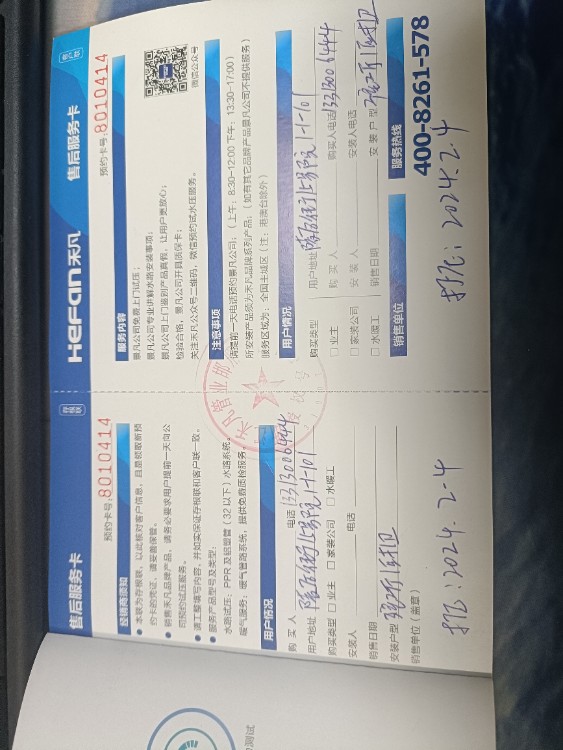 售后服务卡
存根联
预约卡号:8010414
经销商须知
● 本联为存根联，以此核对客户信息，且是领取新预
约卡的凭证，请妥善保管。
● 销售禾凡品牌产品，请务必要求用户提前一天向公
司预约试压服务。
● 请工整填写内容，并如实保证存根联和客户联一致。
● 服务产品型号及类型：
水路试压：PPR及铝塑管（32以下）水路系统。
暖气服务：暖气管路系统，提供免费质检服务。
用户情况
购 买 人
电话 13313006444
用户地址
1-1-101
购买类型 □ 业主 □ 家装公司 □ 水暖工
安装人
电话
销售日期
安装户型
销售单位（盖章）
打压：2024.2-4
HeFan禾凡
售后服务卡
客户联
预约卡号:8010414
服务内容
景凡公司免费上门试压；
景凡公司专业讲解水路安装事项；
景凡公司上门鉴别产品真假，让用户更放心；
检验合格，景凡公司开具质保卡；
关注禾凡公众号二维码，微信预约试水压服务。
微信公众号
注意事项
请提前一天电话预约景凡公司；（上午：8:30-12:00 下午：13:30-17:00）
所安装产品须为禾凡品牌系列产品；（如有其它品牌产品景凡公司不提供服务）
服务区域为：全国主城区（注：港澳台除外）
用户情况
购买类型
用户地址
1-1-101
□ 业主
购 买 人
购买人电话 13313006444
□ 家装公司
安 装 人
安装人电话
□ 水暖工
销售日期
安 装 户 型
销售单位
服务热线
400-8261-578
打压：2024.2-4
禾凡管业
测试